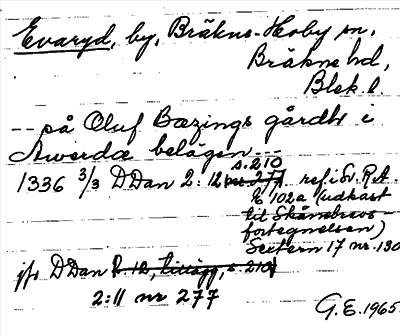 Evaryd, by, Bräkne-Hoby sn,
Bräkne hd,
Blek. l.
-- på Oluf Bæzings gårdh i
Awerdæ belägen --
s. 210
1336 3/3 DDan 2:12 nr 277. ref. i Sv. R.A.
102a (udkast
til Skånebrevs-
fortegnelsen)
Sextern 17 nr. 130
jfr DDan 2:12, tillägg, s. 210
2:11 nr 277
G.E. 1965